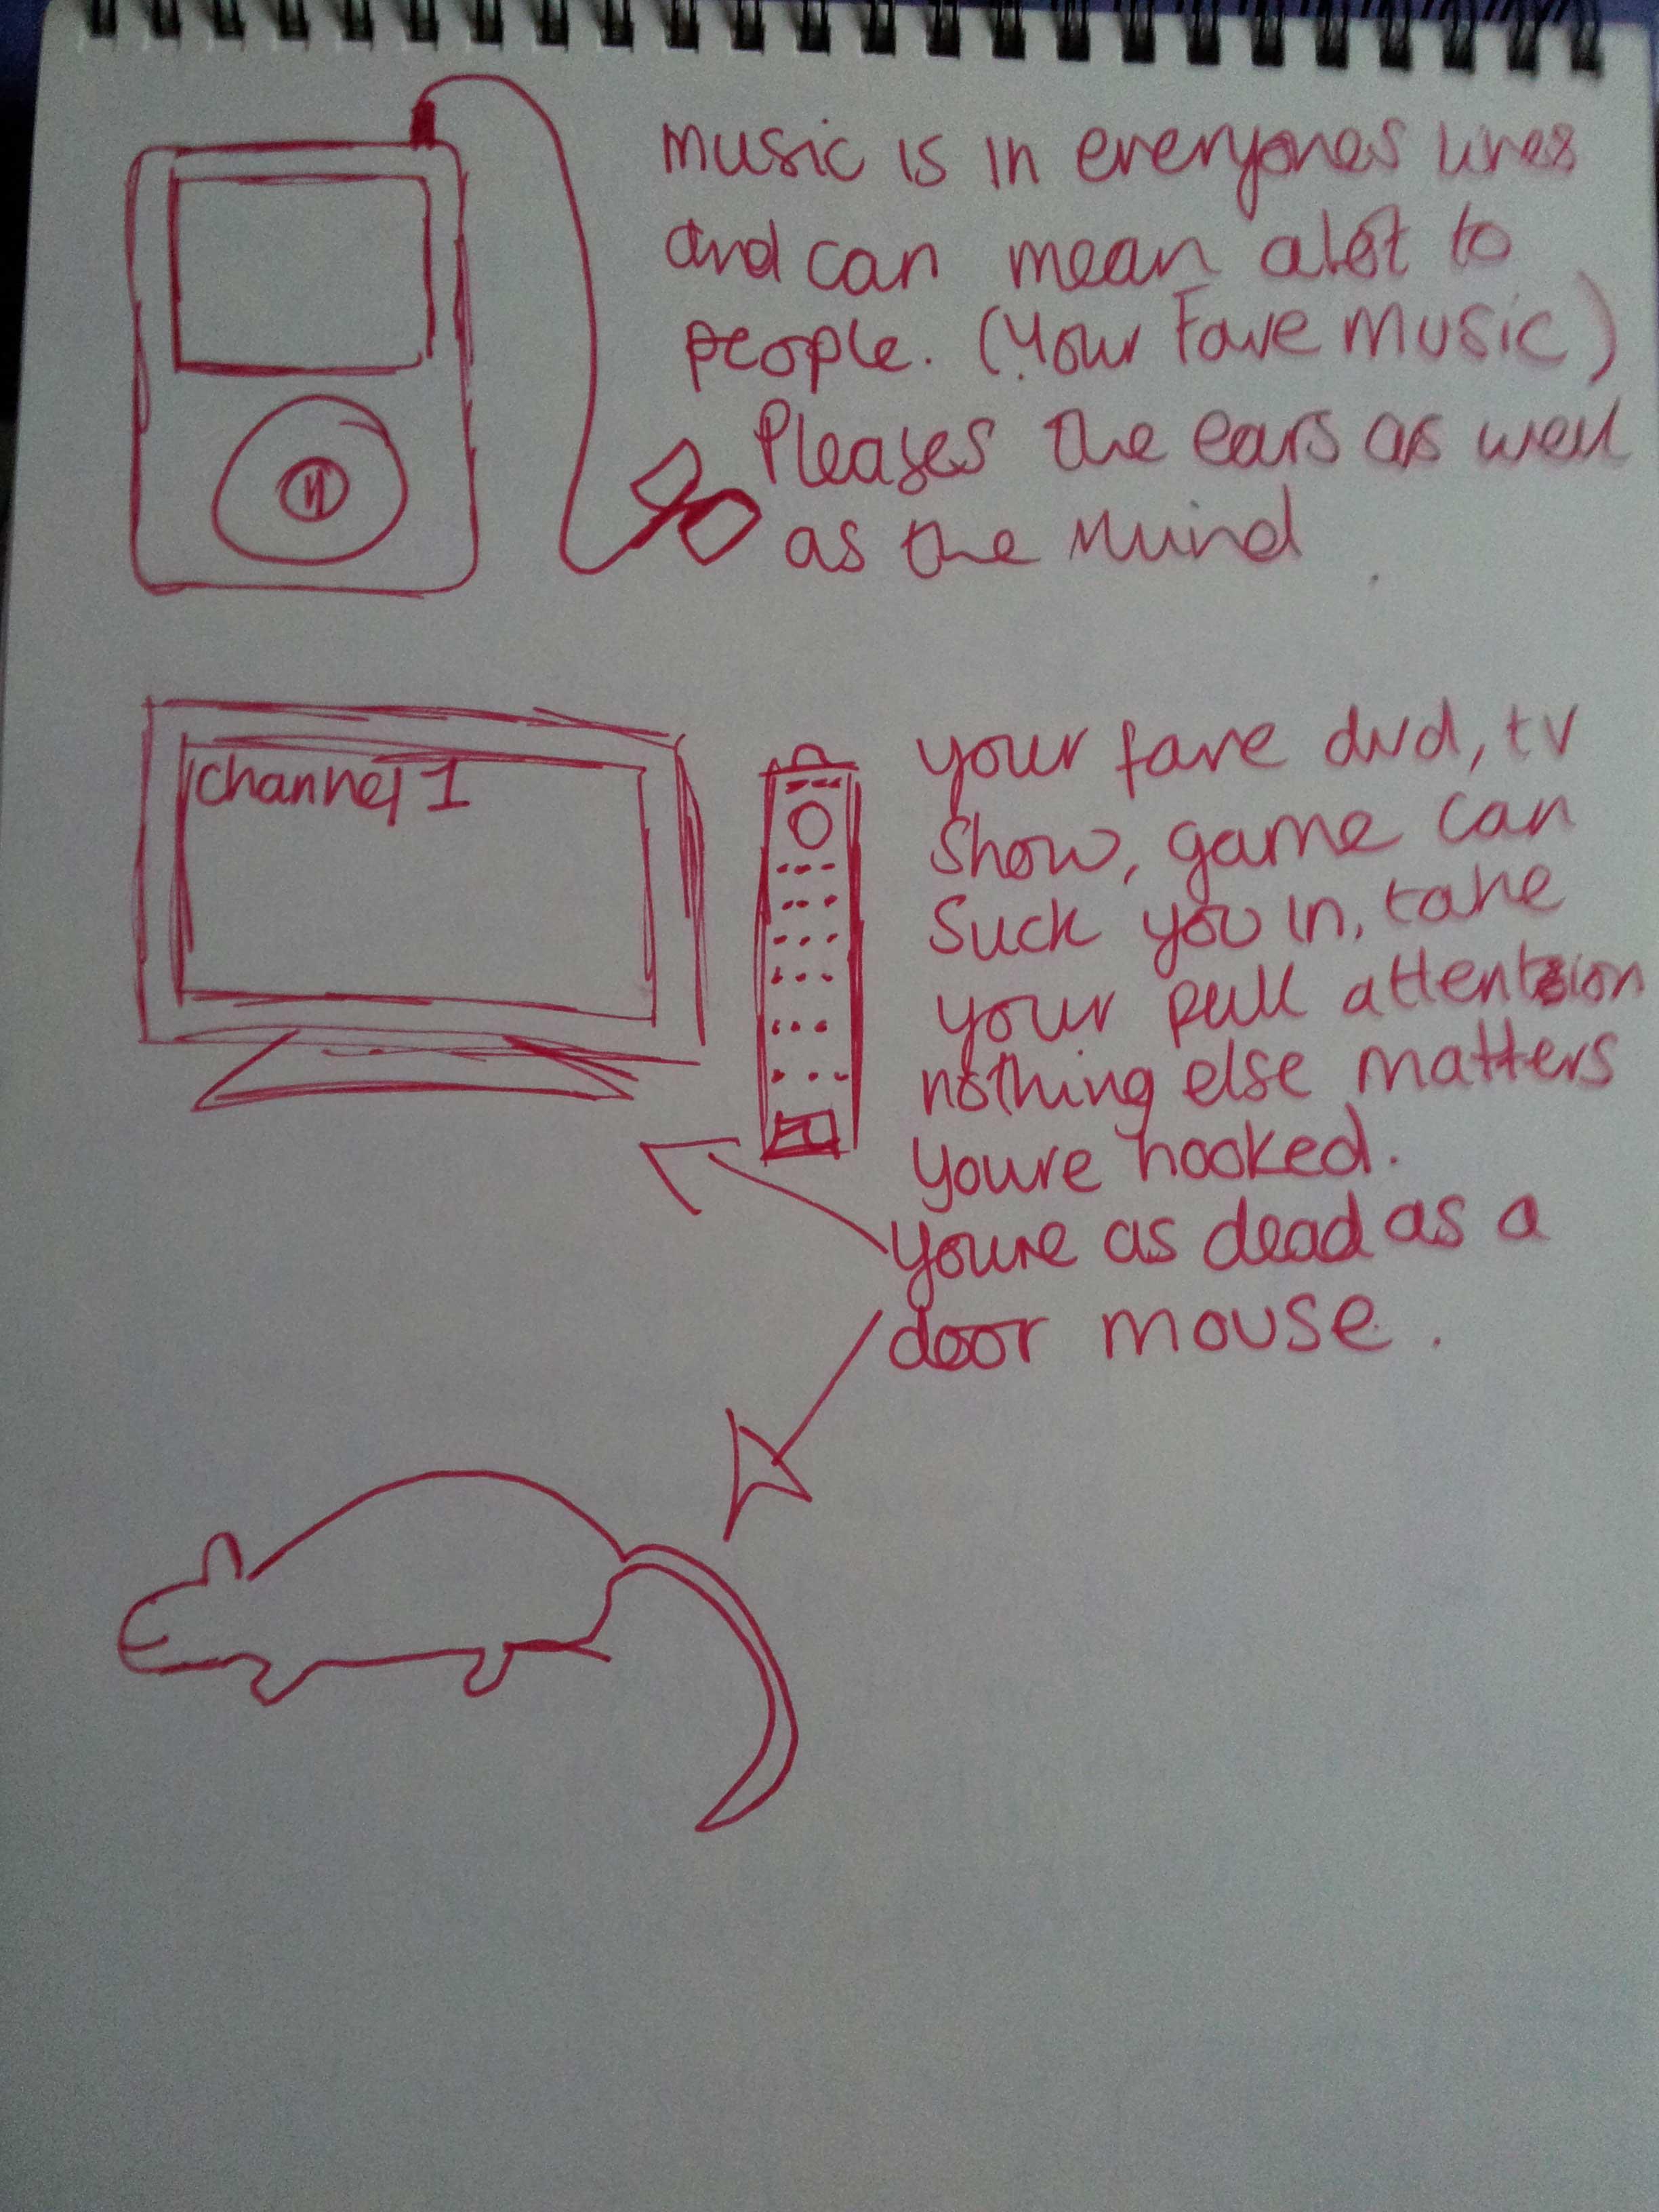 music is in everyones lives
and can mean alot to
people. (Your Fave music)
Pleases the ears as well
as the Mind
channel 1
your fave dvd, tv
show, game can
suck you in, take
your full attention
nothing else matters
youre hooked.
youre as dead as a
door mouse.